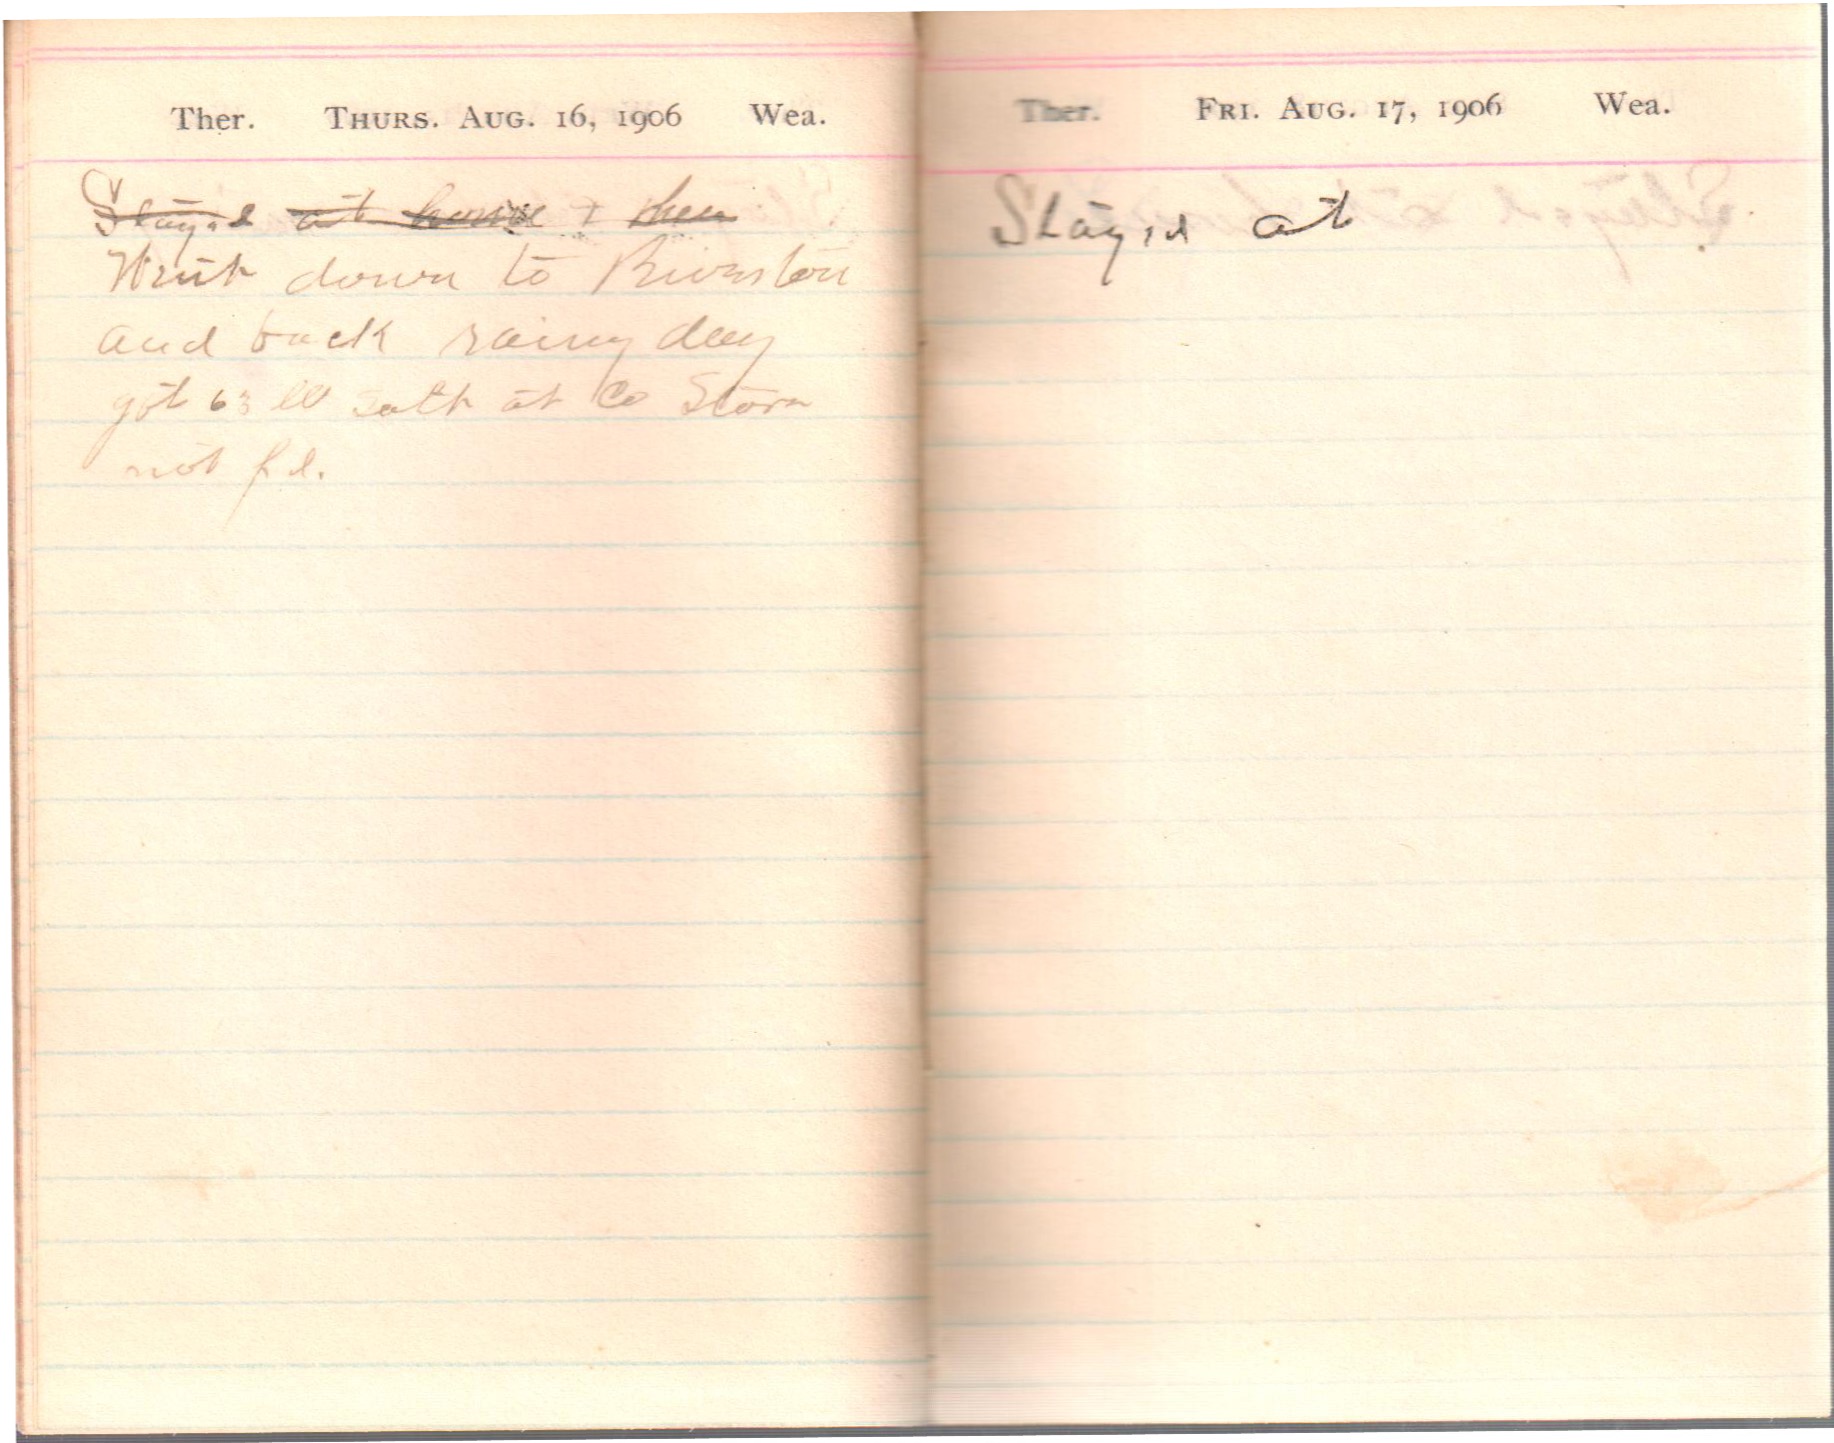 Ther. THURS. AUG. 16, 1906 Wea.
Stayed at home & then
Went down to Riverston
and back rainy day
got 63 lb salt at Co Store
not pd.
Ther. FRI. AUG. 17, 1906 Wea.
Stayed at